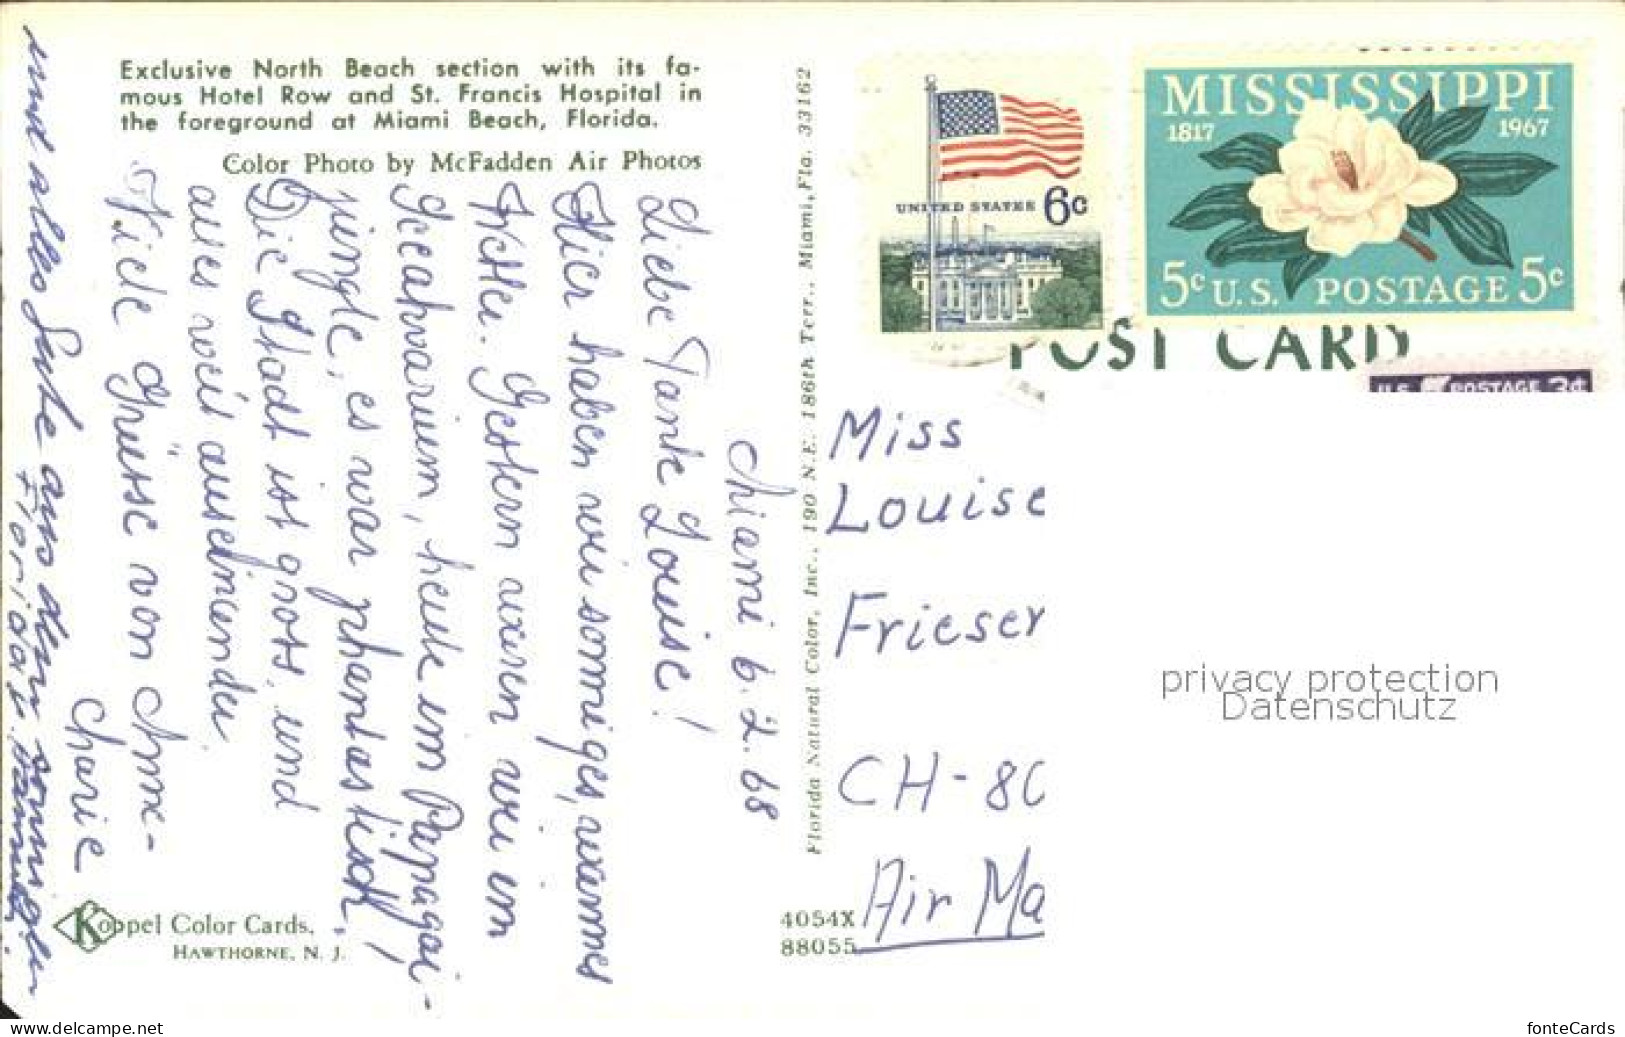 Exclusive North Beach section with its fa-
mous Hotel Row and St. Francis Hospital in
the foreground at Miami Beach, Florida.
Color Photo by McFadden Air Photos
Miami 6.2.68
Liebe Tante Louise!
Hier haben wir sonniges, warmes
Wetter. Gestern waren wir im
Seeahvarium, heute im Papagai-
jungle, es war phantastisch!
Die Stadt ist gross, und
alles weit auseinander.
Viele Grüsse von Anne-
Charie
und alles Gute aus dem sonnigen
Florida
Koppel Color Cards.
HAWTHORNE, N. J.
Florida Natural Color, Inc., 190 N.E. 186th Terr., Miami, Fla. 33162
4054X
88055
UNITED STATES 6c
MISSISSIPPI
1817 1967
5c U.S. POSTAGE 5c
POST CARD
U.S. POSTAGE 3¢
Miss
Louise
Frieser
CH-80
Air Ma
privacy protection
Datenschutz
www.delcampe.net
fonteCards